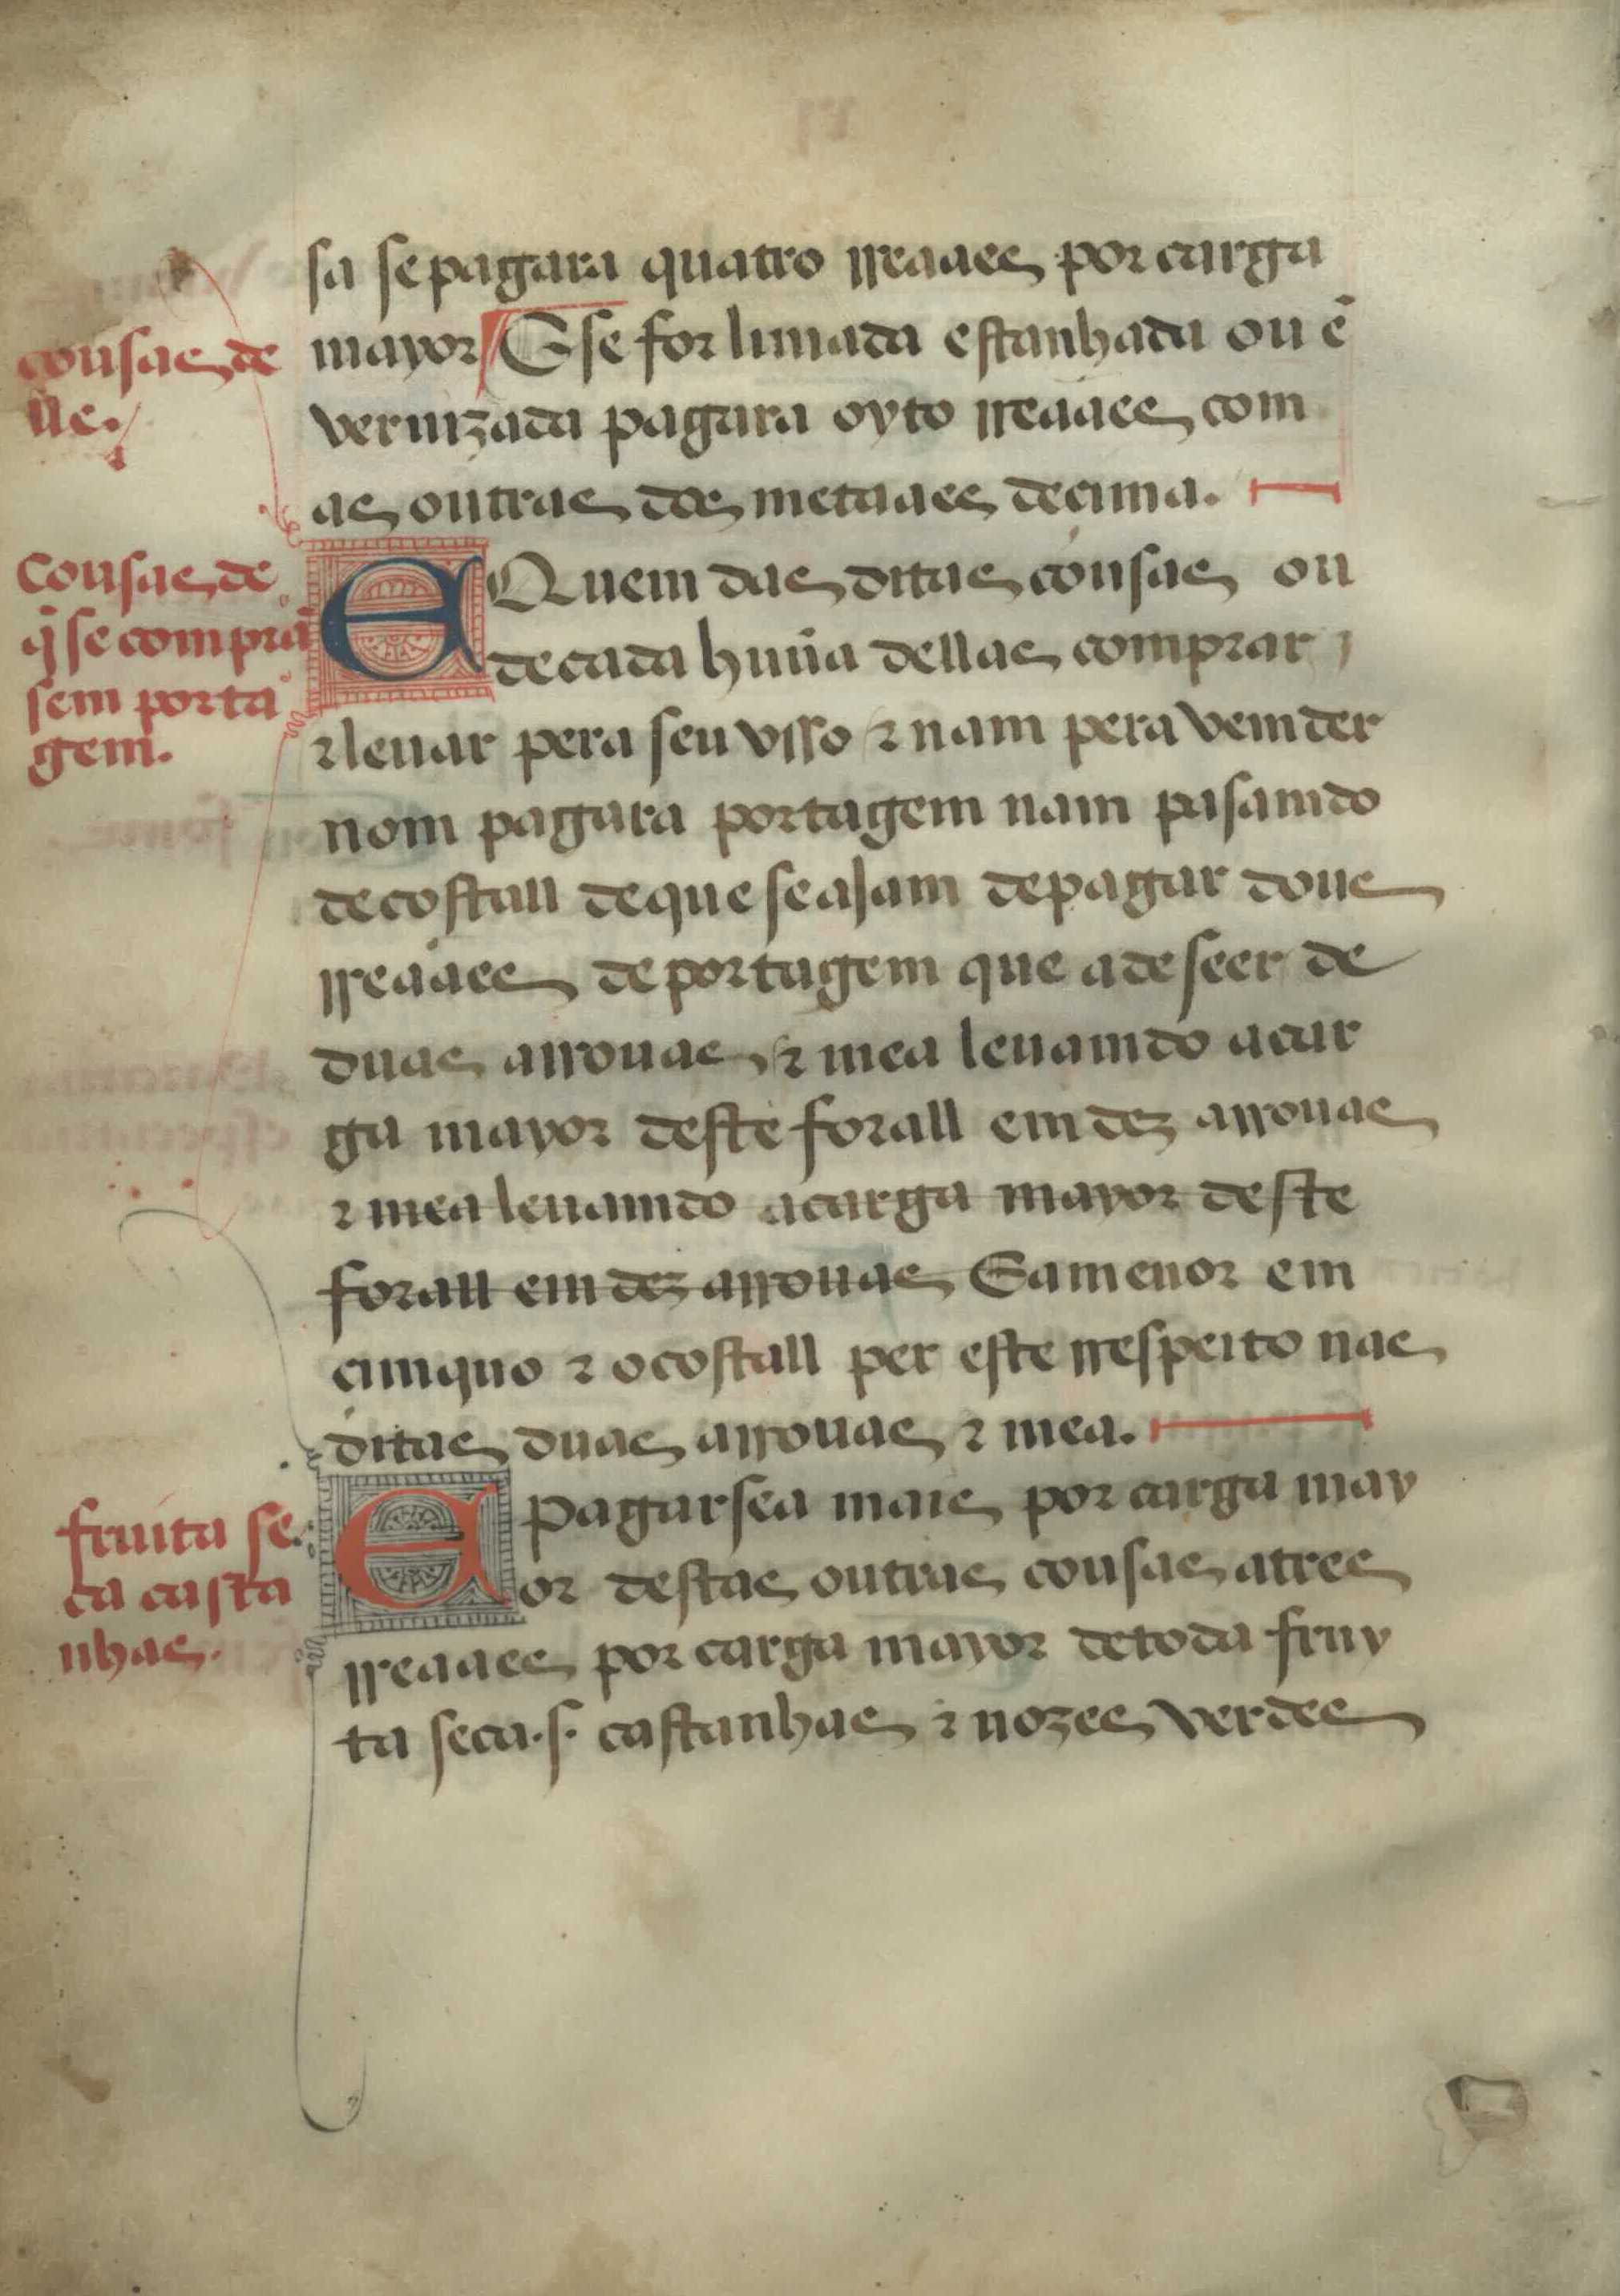 sa se pagara quatro rreaaes por carga
cousas de
mayor E se for limada estanhada ou ẽ
lle.
vernizada pagara oyto rreaaes com
as outras dos metaaes decima.
Cousas de
q̃ se comprã
sem porta
gem.
E Quem das ditas cousas ou
de cada huũa dellas comprar
⁊ leuar pera seu vsso ⁊ nam pera vemder
nom pagara portagem nam pasamdo
de costall de que se ajam de pagar dous
rreaaes de portagem que a de seer de
duas arrouas ⁊ mea leuamdo a car
ga mayor deste forall em dez arrouas
⁊ mea leuamdo a carga mayor deste
forall em dez arrouas E a menor em
cimquo ⁊ o costall per este rrespeito nas
ditas duas arrouas ⁊ mea.
fruita se
ca casta
nhas.
E pagarsea mais por carga may
or destas outras cousas a tres
rreaaes por carga mayor de toda fruy
ta seca .s. castanhas ⁊ nozes verdes